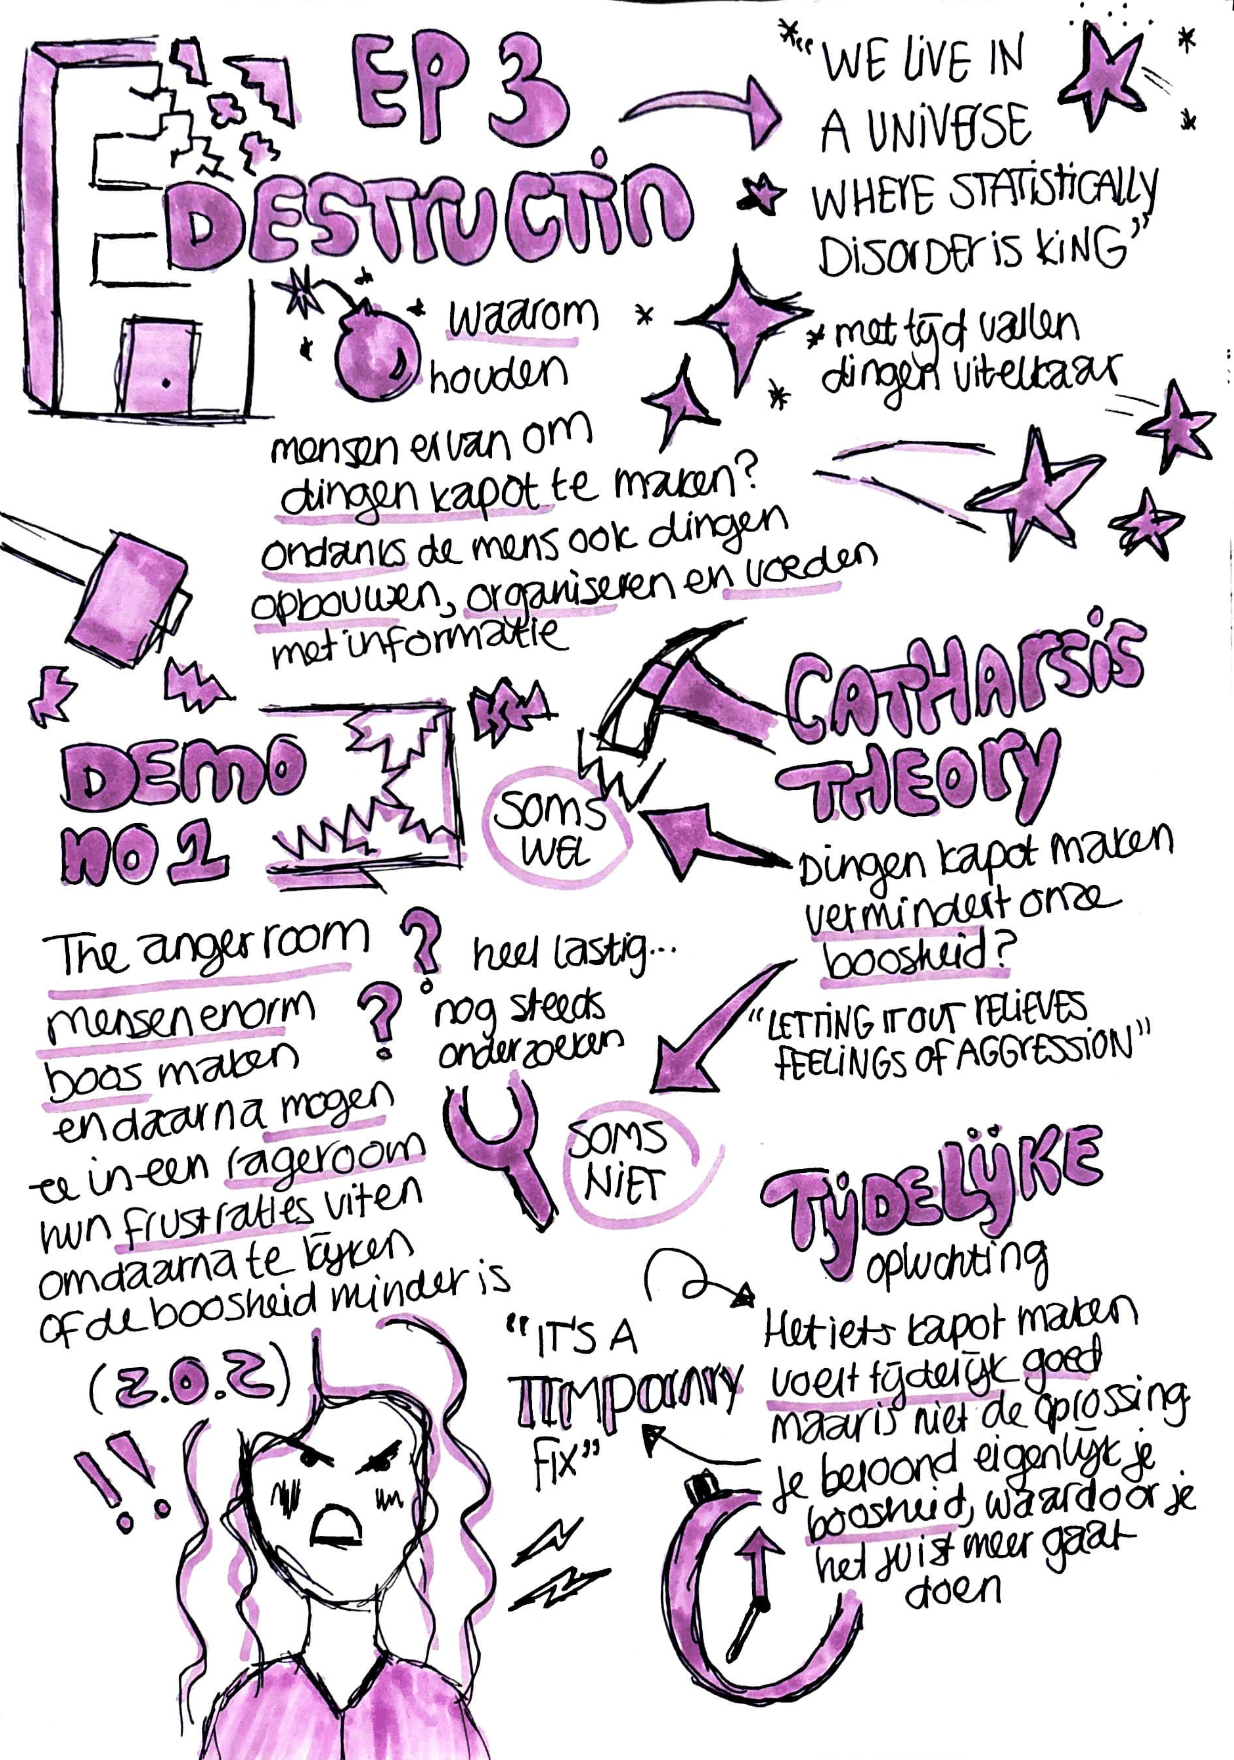 EP 3
DESTRUCTiN
"WE LiVE IN
A UNiVERSE
WHERE STATiSTiCALLY
DISORDER iS KiNG"
* met tijd vallen
dingen uitelkaar
waarom
houden
mensen ervan om
dingen kapot te maken?
ondanks de mens ook dingen
opbouwen, organiseren en voeden
met informatie
CATHARSiS
THEORY
Dingen kapot maken
vermindert onze
boosheid?
"LETTiNG IT OUT RELiEVES
FEELiNGS OF AGGRESSiON"
SOMS
WEL
DEMO
NO 1
The anger room
mensen enorm
boos maken
en daarna mogen
ze in een rageroom
hun frustraties uiten
om daarna te kijken
of de boosheid minder is
(Z.O.Z)
!!
? heel lastig...
? nog steeds
onderzoeken
SOMS
NiET
TijDELijKE
opluchting
Het iets kapot maken
voelt tijdelijk goed
maar is niet de oplossing
je beloond eigenlijk je
boosheid, waardoor je
het juist meer gaat
doen
"IT'S A
TEMPORARY
Fix"